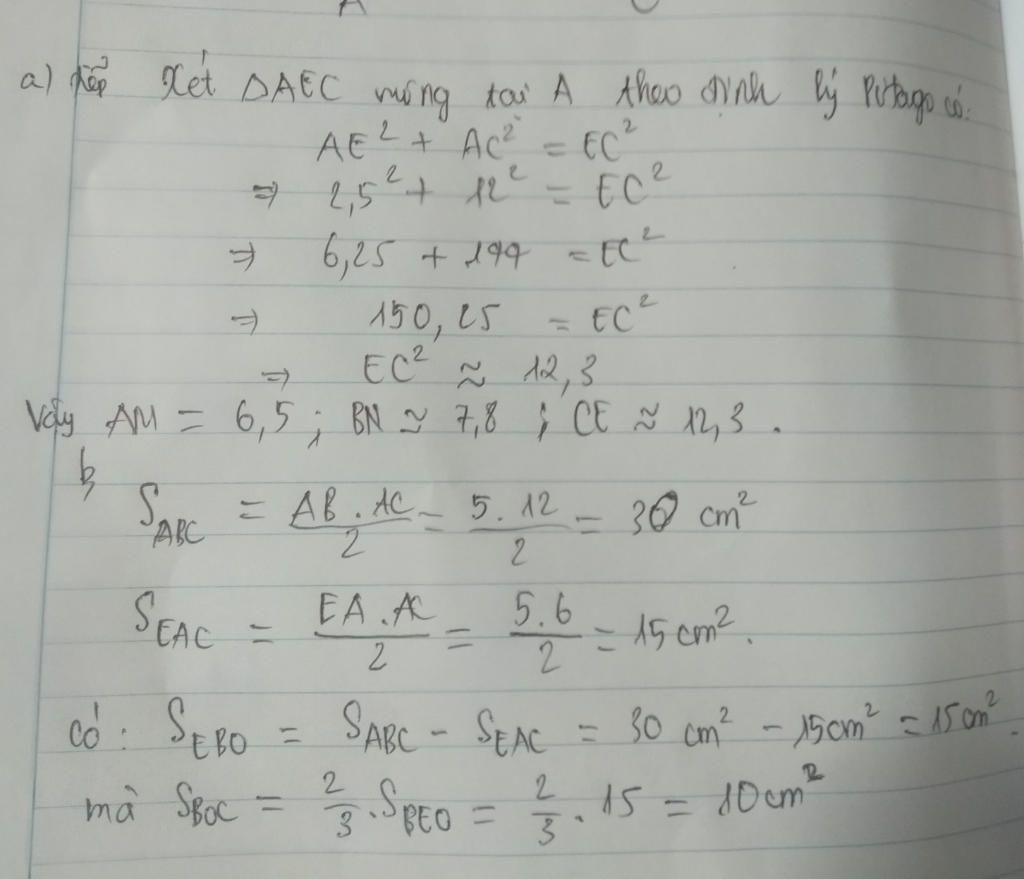 A C
a) tiếp Xét ΔAEC vuông tại A theo định lý Pitago có:
AE² + AC² = EC²
⇒ 2,5² + 12² = EC²
⇒ 6,25 + 144 = EC²
⇒ 150,25 = EC²
⇒ EC² ≈ 12,3
Vậy AM = 6,5 ; BN ≃ 7,8 ; CE ≈ 12,3 .
b,
S_ABC = AB . AC / 2 = 5 . 12 / 2 = 30 cm²
S_EAC = EA . AC / 2 = 5 . 6 / 2 = 15 cm² .
có : S_EBO = S_ABC - S_EAC = 30 cm² - 15cm² = 15cm² .
mà S_BOC = 2/3 . S_BEO = 2/3 . 15 = 10cm²